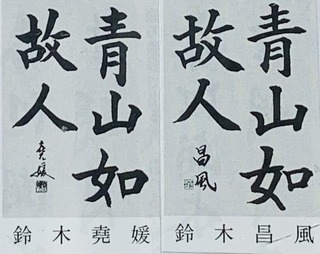 青山如
故人
堯媛
鈴木堯媛
青山如
故人
昌風
鈴木昌風